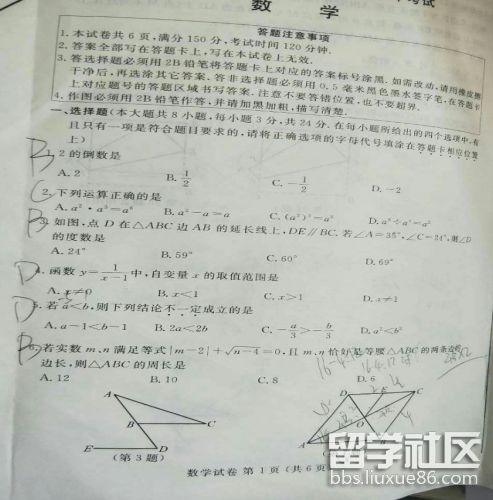 数 学
答题注意事项
1.本试卷共6页,满分150分,考试时间120分钟.
2.答案全部写在答题卡上,写在本试卷上无效.
3.答选择题必须用2B铅笔将答题卡上对应的答案标号涂黑.如需改动,请用橡皮擦
干净后,再选涂其它答案.答非选择题必须用0.5毫米黑色墨水签字笔,在答题卡
上对应题号的答题区域书写答案.注意不要答错位置,也不要超界.
4.作图必须用2B铅笔作答,并请加黑加粗,描写清楚.
一、选择题(本大题共8小题,每小题3分,共24分.在每小题所给出的四个选项中,有
且只有一项是符合题目要求的,请将正确选项的字母代号填涂在答题卡相应位置
上)
B 1. 2的倒数是
A. 2 B. 1/2 C. -1/2 D. -2
C 2. 下列运算正确的是
B. a²-a=a C. (a²)³=a⁶
B 3. 如图,点D在△ABC边AB的延长线上,DE∥BC.若∠A=35°,∠C=24°,则∠D
的度数是
A. 24° B. 59° C. 60° D. 69°
D 4. 函数y=1/(x-1)中,自变量x的取值范围是
A. x≠0 B. x<1 C. x>1 D. x≠1
D 5. 若a<b,则下列结论不一定成立的是
A. a-1<b-1 B. 2a<2b C. -a/3>-b/3 D. a²<b²
6. 若实数m,n满足等式|m-2|+√(n-4)=0,且m,n恰好是等腰△ABC的两条边的
边长,则△ABC的周长是
A. 12 B. 10 C. 8 D. 6
A
B
C
E
D
(第3题)
D
C
O
A
数学试卷 第1页(共6页
留学社区
bbs.liuxue86.com